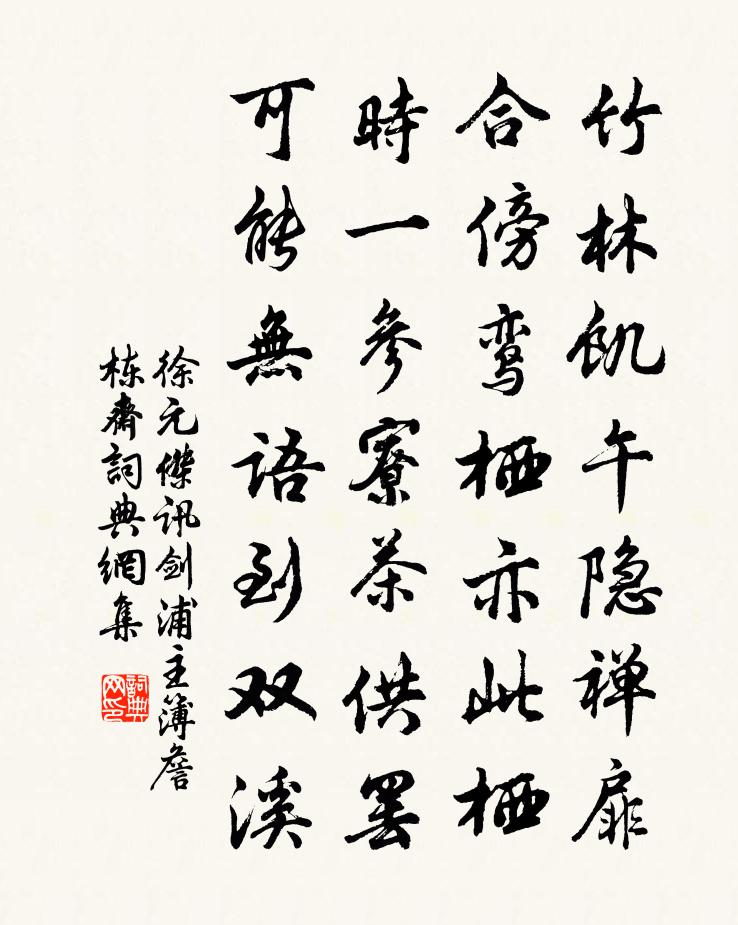 竹林飢午隐禅扉
合傍鸾栖亦此栖
時一参寮茶供罢
可能無語到双溪
徐元傑訊剑浦主簿詹
栋斋詞典網集
詞典网印